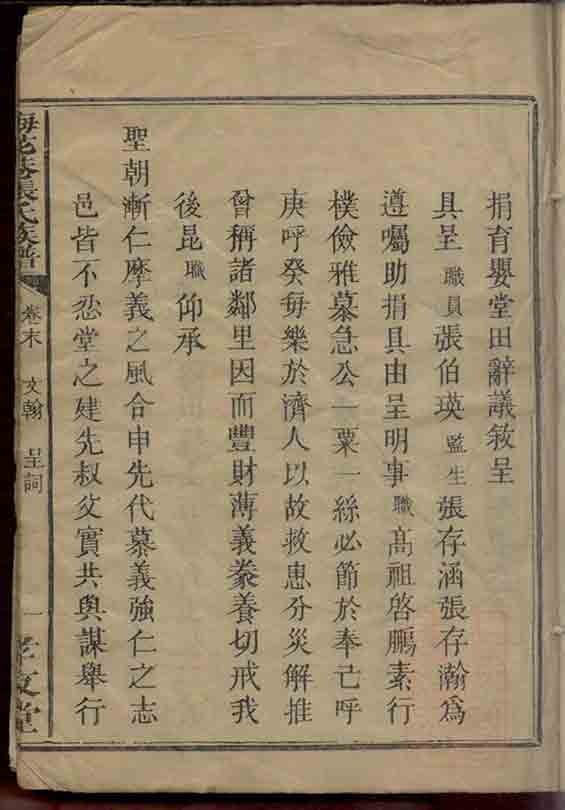 捐育嬰堂田辭議敘呈
具呈職員張伯瑛監生張存涵張存瀚為
遵囑助捐具由呈明事職高祖啓鵬素行
樸儉雅慕急公一粟一絲必節於奉己呼
庚呼癸每樂於濟人以故救患分災解推
曾稱諸鄰里因而豐財薄義豢養切戒我
後昆職仰承
聖朝漸仁摩義之風合申先代慕義強仁之志
邑皆不忍堂之建先叔父實共與謀舉行
梅花巷張氏族譜
卷末 文翰 呈詞 一
孝友堂